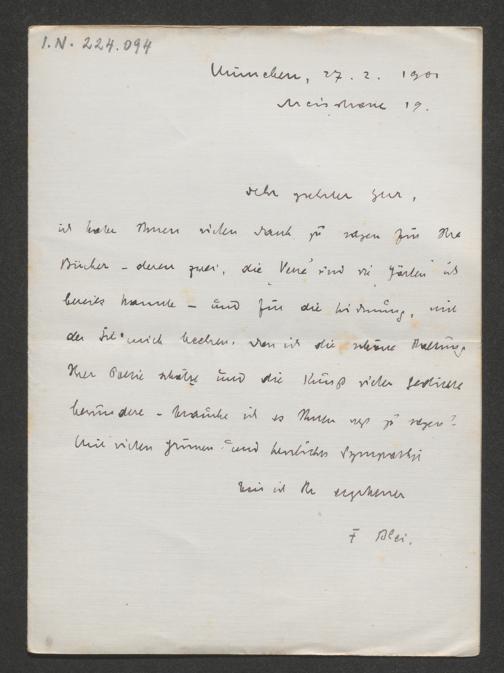 I.N. 224.094
München, 27. 2. 1901
Meisstrasse 19.
Sehr geehrter Herr,
ich habe Ihnen vielen Dank zu sagen für Ihre
Bücher – deren zwei, die "Verse" und die "Gärten" ich
bereits kannte – und für die Widmung, mit
der Sie mich beehren. Dass ich die schöne Haltung
Ihrer Poesie schätze und die Kunst vieler Gedichte
bewundere – brauche ich es Ihnen erst zu sagen?
Mit vielen Grüssen und herzlicher Sympathie
bin ich Ihr ergebener
F Blei.